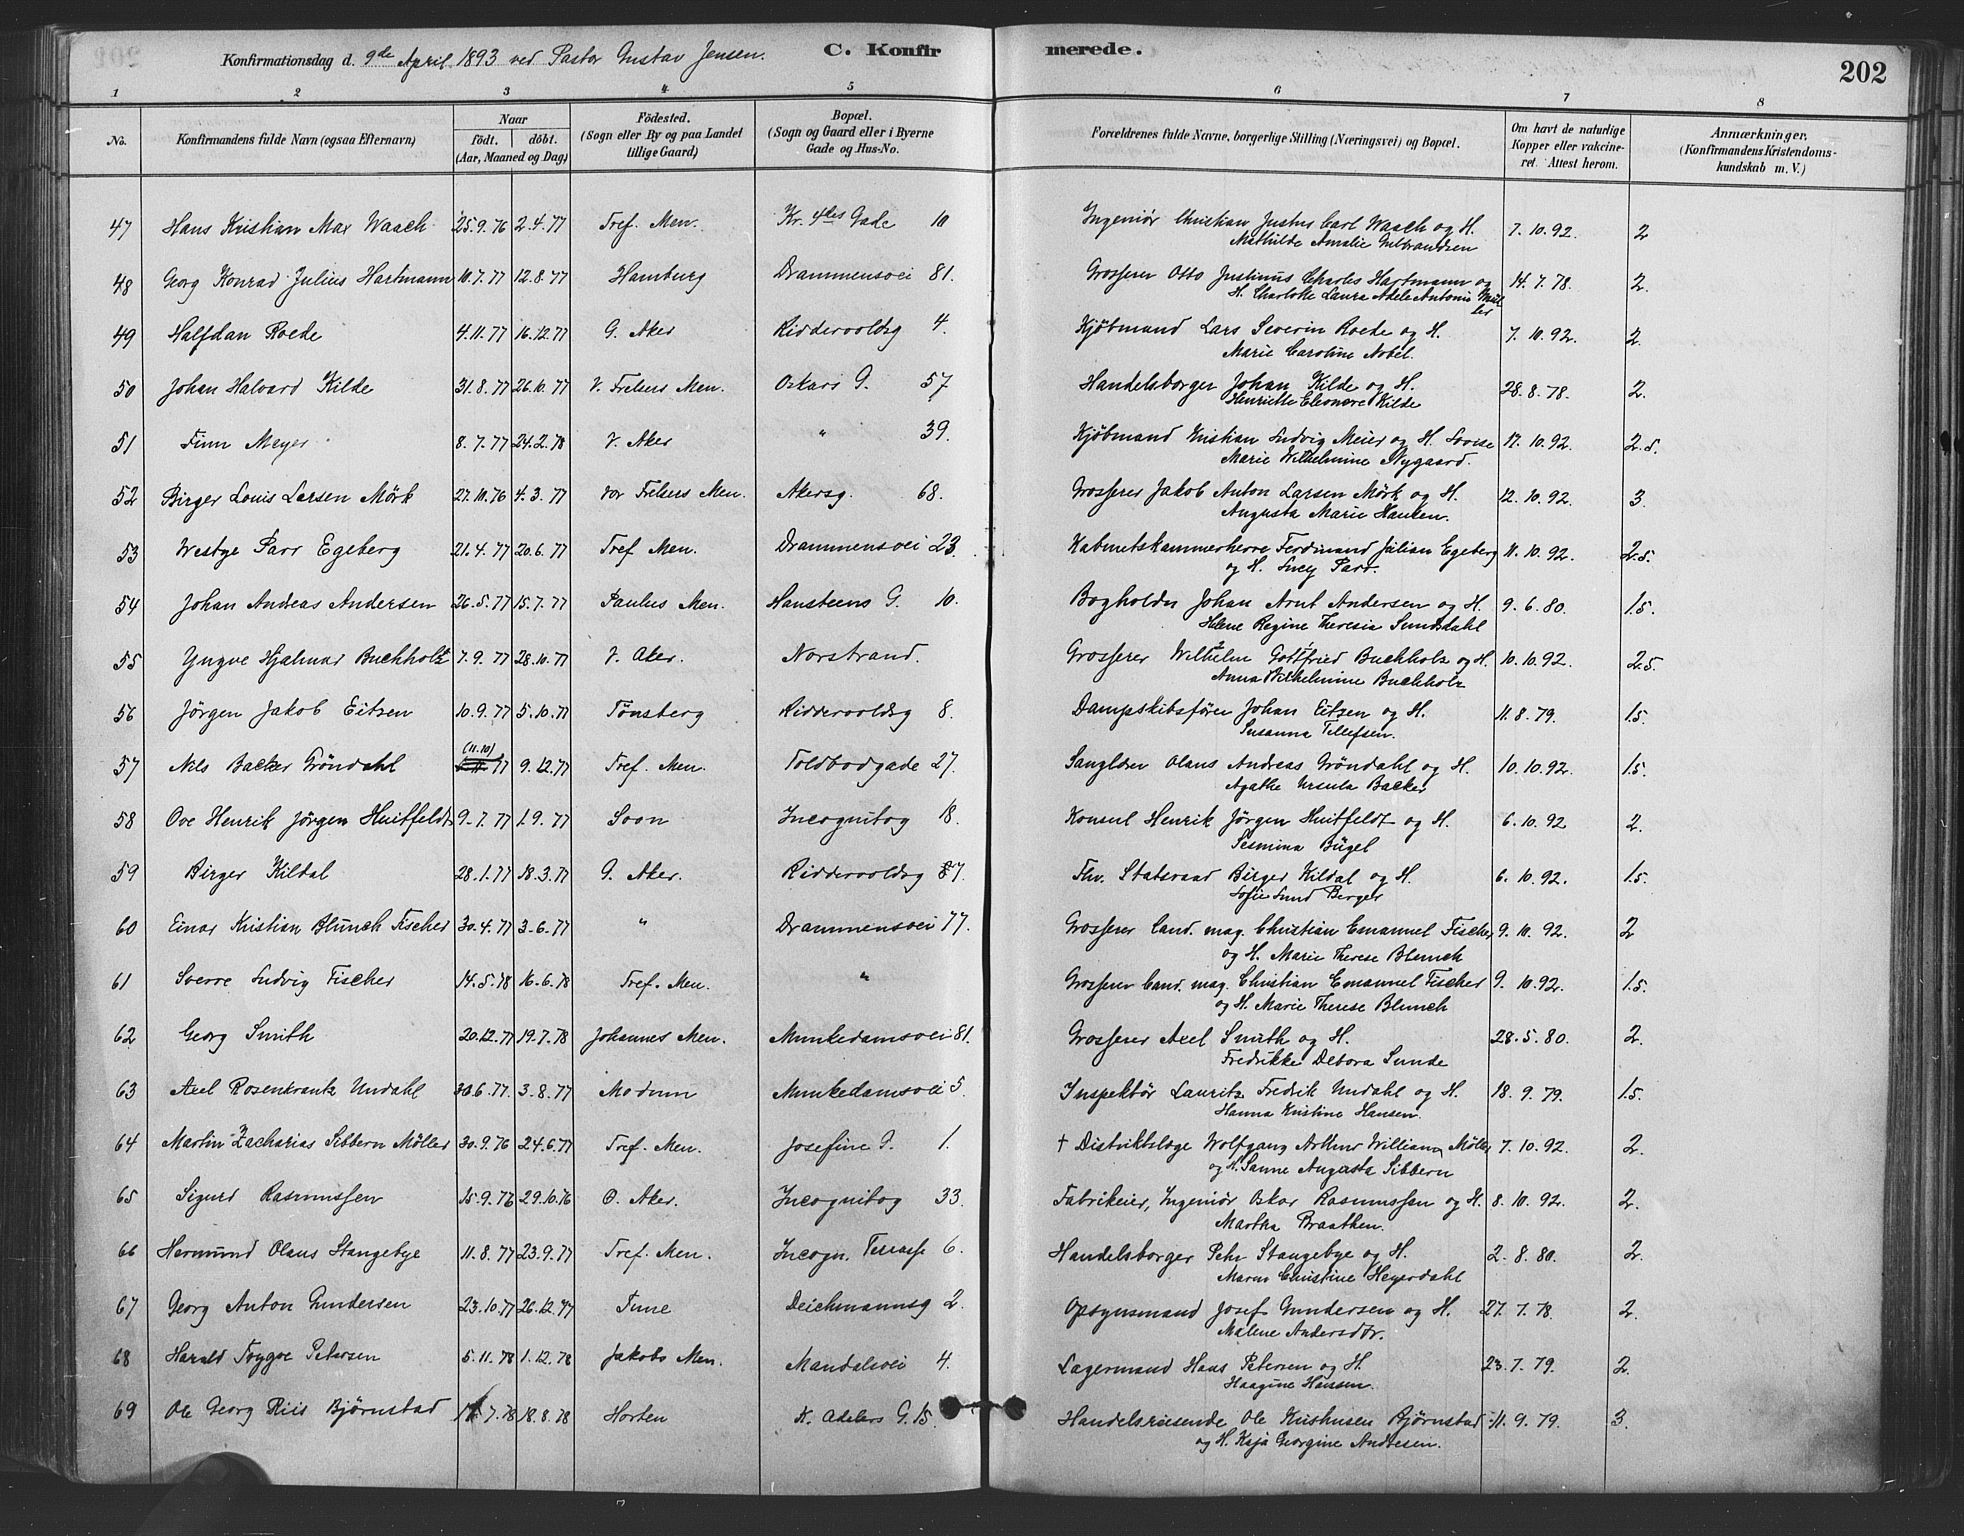 Konfirmationsdag d. 9de April 1893 ved Pastor Gustav Jensen. C. Konfirmerede. 202
1 2 3 4 5 6 7 8
No. Konfirmandens fulde Navn (ogsaa Efternavn) Naar födt. döbt. (Aar, Maaned og Dag) Födested. (Sogn eller By og paa Landet tillige Gaard) Bopæl. (Sogn og Gaard eller i Byerne Gade og Hus-No. Forældrenes fulde Navne, borgerlige Stilling (Næringsvei) og Bopæl. Om havt de naturlige Kopper eller vakcineret. Attest herom. Anmærkninger. (Konfirmandens Kristendomskundskab m. V.)
47 Hans Kristian Max Waach 25.9.76 2.4.77 Tref. Men. Kr. 4des Gade 10 Ingeniör Christian Justus Carl Waach og H. 7.10.92. 2
Mathilde Amalie Gulbrandsen
48 Georg Konrad Julius Hartmann 10.7.77 12.8.77 Hamburg Drammensvei 81. Grosserer Otto Justinus Charles Hartmann og 14.7.78. 2.
H. Charlotte Laura Adele Antonie Müller
49 Halfdan Roede 4.11.77 16.12.77 G. Aker Riddervoldsg 4. Kjöbmand Lars Severin Roede og H. 7.10.92. 2.
Marie Caroline Nobel.
50 Johan Halvard Kilde 31.8.77 26.10.77 V. Frelsers Men. Oskars G. 57 Handelsborger Johan Kilde og H. 28.8.78. 2.
Henriette Eleonore Kilde
51 Finn Meyer 8.7.77 24.2.78 V. Aker " 39. Kjöbmand Kristian Ludvig Meier og H. Lovise 17.10.92. 2.5.
Marie Wilhelmine Nygaard.
52 Birger Louis Larsen Mörk 27.10.76 4.3.77 Vor Frelsers Men. Akersg. 68. Grosserer Jakob Anton Larsen Mörk og H. 12.10.92. 3.
Augusta Marie Hansen.
53 Westye Parr Egeberg 21.4.77 20.6.77 Tref Men. Drammensvei 23. Kabinetskammerherre Ferdinand Julian Egeberg 11.10.92. 2.5.
og H. Lucy Parr.
54 Johan Andreas Andersen 26.5.77 15.7.77 Paulus Men. Hansteens G. 10. Bogholder Johan Arnt Andersen og H. 9.6.80. 1.5.
Helene Regine Theresia Sundsdahl
55 Yngve Hjalmar Buchholtz 7.9.77 28.10.77 V. Aker. Norstrand. Grosserer Wilhelm Gottfried Buchholz og H. 10.10.92. 2.5
Anna Wilhelmine Buchholz
56 Jörgen Jakob Eitzen 10.9.77 5.10.77 Tönsberg Riddervoldsg 8. Dampskibsförer Johan Eitzen og H. 11.8.79. 1.5.
Susanna Tellefsen.
57 Nils Backer Gröndahl (11.10) 77 9.12.77 Tref. Men. Toldbodgade 27. Sanglærer Olaus Andreas Gröndahl og H. 10.10.92. 1.5.
Agathe Ursula Backer
58 Ove Henrik Jörgen Huitfeldt 9.7.77 1.9.77 Soon Incognitog 18. Konsul Henrik Jörgen Huitfeldt og H. 6.10.92. 2.
Sesmina Bügel
59 Birger Kildal 28.1.77 18.3.77 G. Aker. Riddervoldsg 7. Fhv. Statsraad Birger Kildal og H. 6.10.92. 1.5.
Sofie Lund Berger
60 Einar Kristian Blunch Fischer 30.4.77 3.6.77 " Drammensvei 77. Grosserer Cand. mag. Christian Emanuel Fischer 9.10.92. 2
og H. Marie Therese Blunch
61 Sverre Ludvig Fischer 14.5.78 16.6.78 Tref. Men. " Grosserer Cand. mag. Christian Emanuel Fischer 9.10.92. 1.5.
og H. Marie Therese Blunch
62 Georg Smith 20.12.77 19.7.78 Johannes Men. Munkedamsvei 81. Grosserer Axel Smith og H. 28.5.80. 2.
Fredrikke Debora Sunde
63 Axel Rosenkrantz Undahl 30.6.77. 3.8.77 Modum Munkedamsvei 5. Inspektör Lauritz Fredrik Undahl og H. 18.9.79. 1.5.
Hanna Kristine Hansen.
64 Martin Zacharias Sibbern Möller 30.9.76 24.6.77 Tref. Men. Josefine G. 1. † Distriktslæge Wolfgang Arthur William Möller 7.10.92. 2.
og H. Sanne Augusta Sibbern
65 Sigurd Rasmussen 15.9.76 29.10.76 Ö. Aker. Incognitog 33. Fabrikeier, Ingeniör Oskar Rasmussen og H. 8.10.92. 2.
Martha Braathen.
66 Hermund Olaus Stangebye 11.8.77 23.9.77 Tref. Men. Incogn. Terrasse 6. Handelsborger Pehr Stangebye og H. 2.8.80. 2.
Maren Christine Heyerdahl
67 Georg Anton Gundersen 23.10.77 26.12.77 Tune Deichmannsg 2. Opsynsmand Josef Gundersen og H. 27.7.78. 2.
Malene Andersdtr.
68 Harald Trygve Petersen 5.11.78 1.12.78 Jakobs Men. Mandalsvei 4. Lagermand Hans Petersen og H. 23.7.79. 2.
Haagine Hansen.
69 Ole Georg Riis Björnstad 7.78 18.8.78 Horten K. Adelers G. 15. Handelsreisende Ole Björnstad 11.9.79. 3.
og H. Kaja Georgine Andresen.